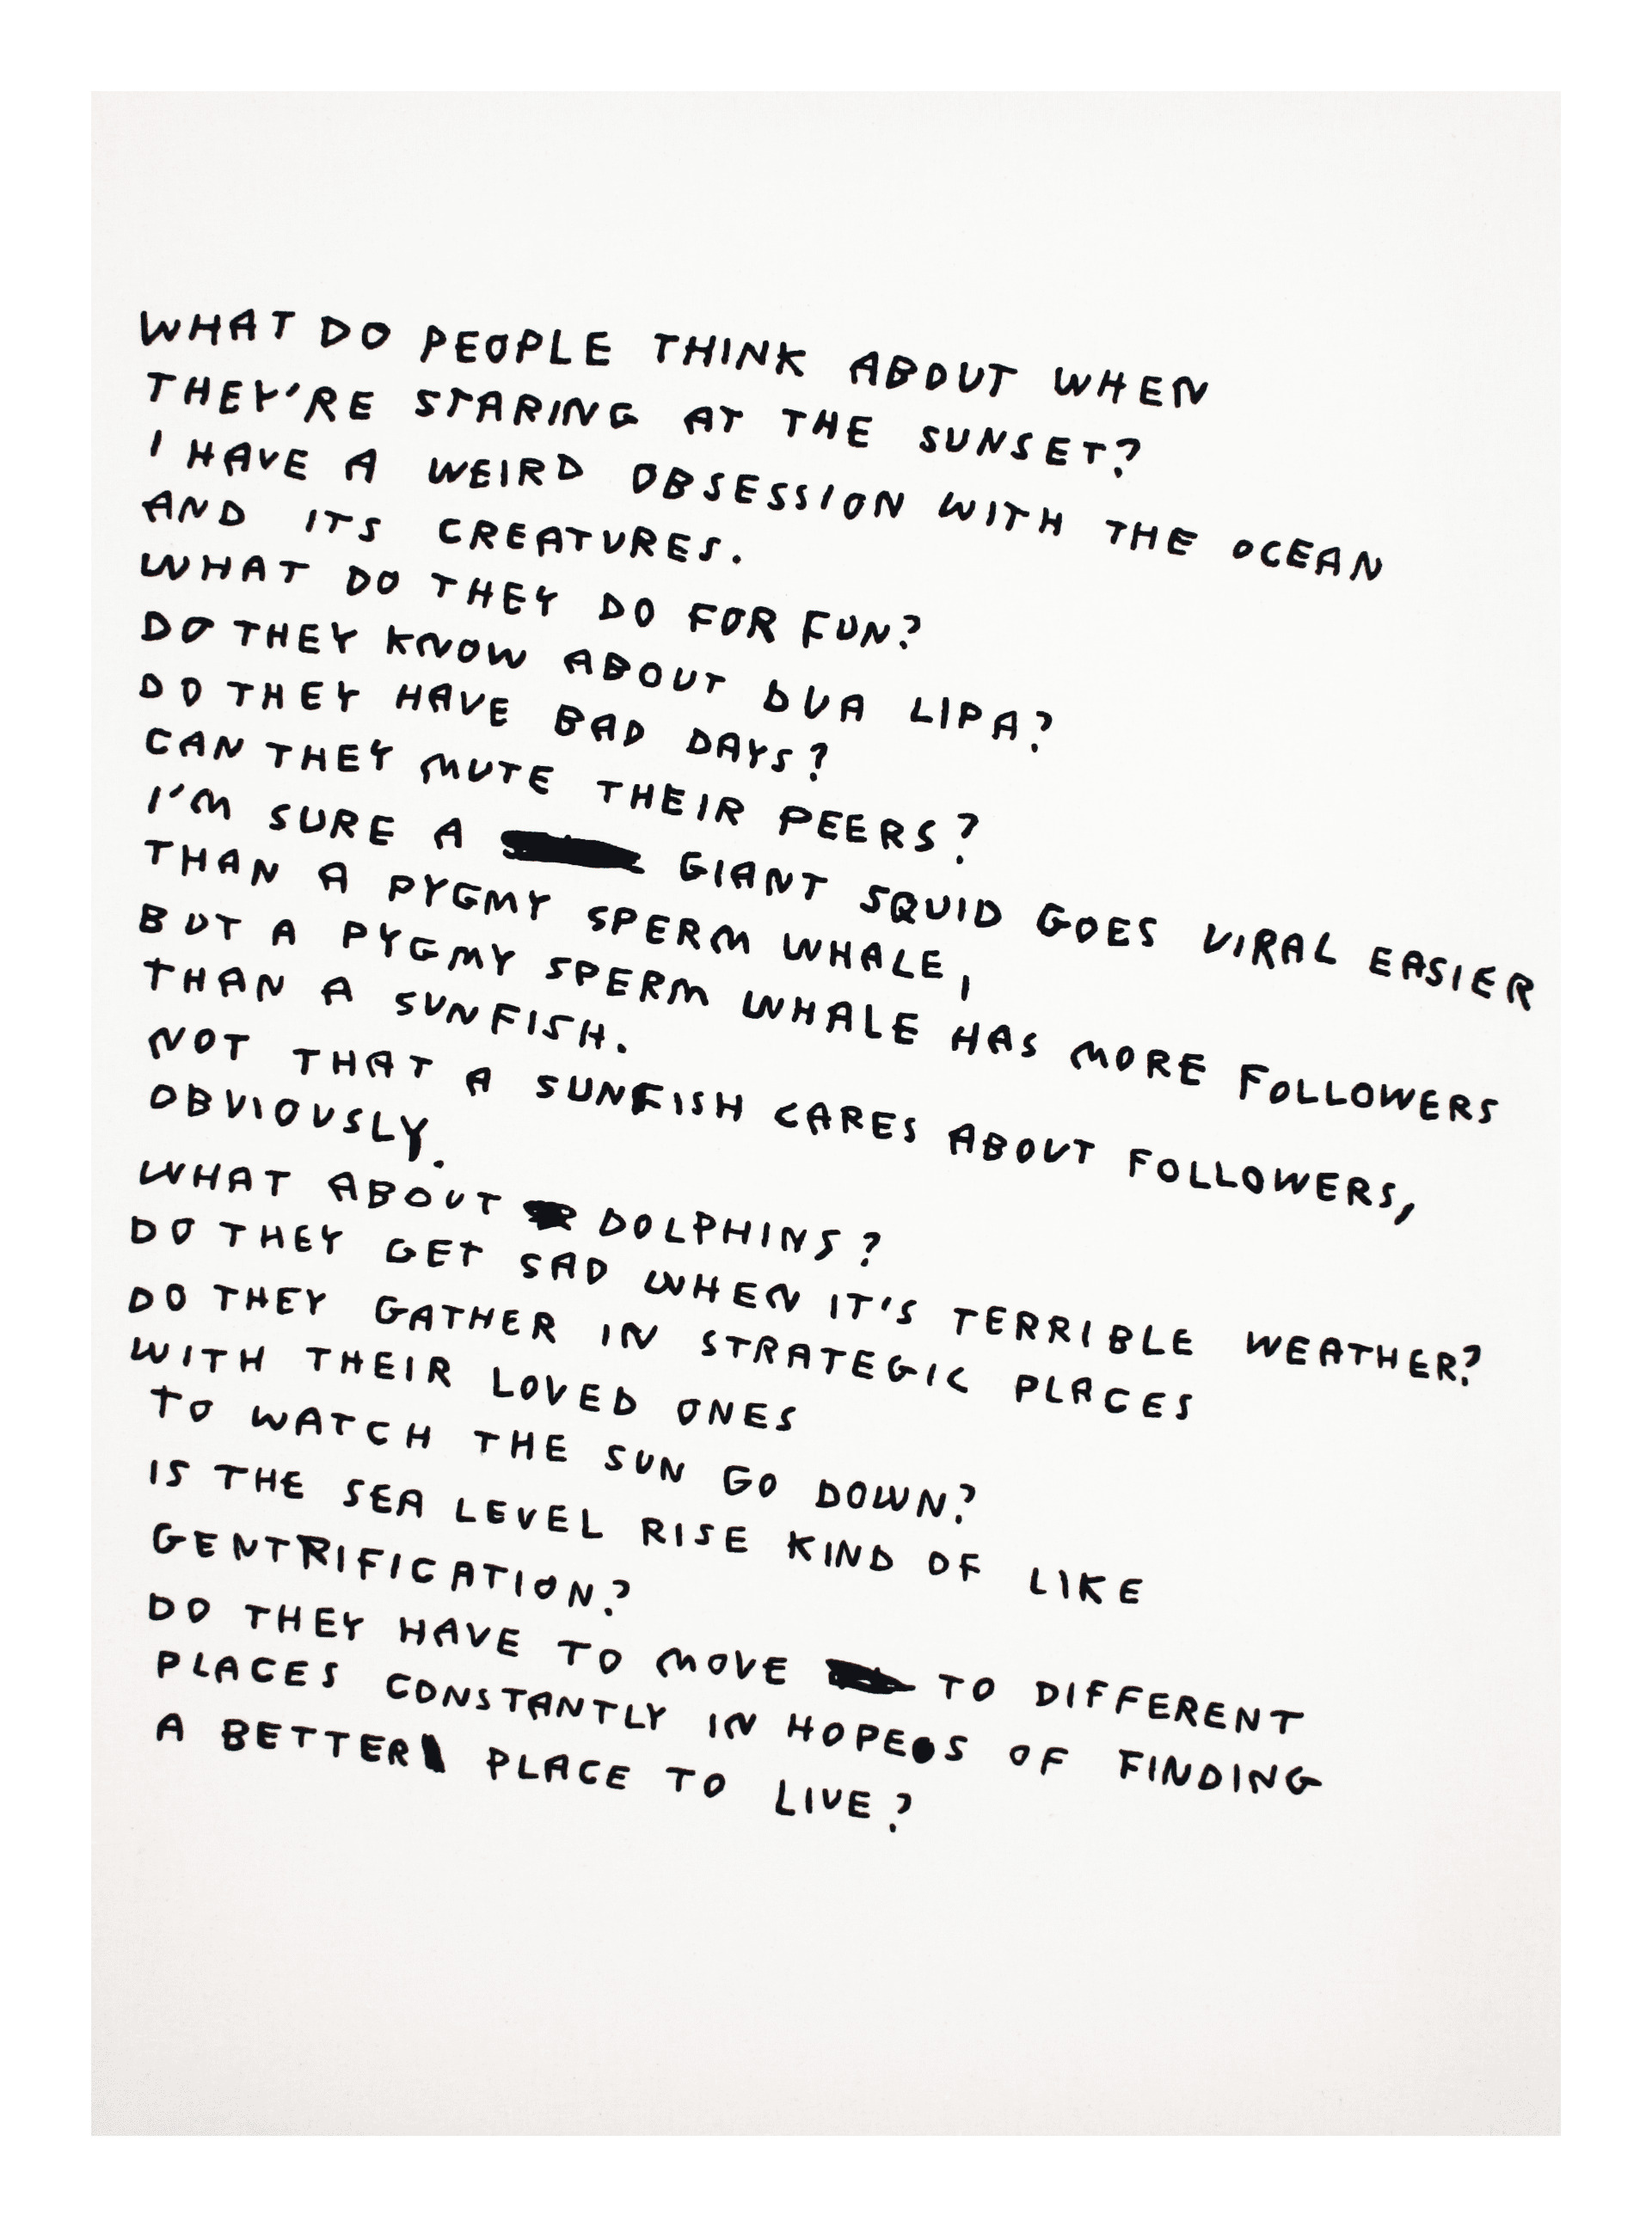 WHAT DO PEOPLE THINK ABOUT WHEN
THEY'RE STARING AT THE SUNSET?
I HAVE A WEIRD OBSESSION WITH THE OCEAN
AND ITS CREATURES.
WHAT DO THEY DO FOR FUN?
DO THEY KNOW ABOUT DUA LIPA?
DO THEY HAVE BAD DAYS?
CAN THEY MUTE THEIR PEERS?
I'M SURE A GIANT SQUID GOES VIRAL EASIER
THAN A PYGMY SPERM WHALE,
BUT A PYGMY SPERM WHALE HAS MORE FOLLOWERS
THAN A SUNFISH.
NOT THAT A SUNFISH CARES ABOUT FOLLOWERS,
OBVIOUSLY.
WHAT ABOUT DOLPHINS?
DO THEY GET SAD WHEN IT'S TERRIBLE WEATHER?
DO THEY GATHER IN STRATEGIC PLACES
WITH THEIR LOVED ONES
TO WATCH THE SUN GO DOWN?
IS THE SEA LEVEL RISE KIND OF LIKE
GENTRIFICATION?
DO THEY HAVE TO MOVE TO DIFFERENT
PLACES CONSTANTLY IN HOPES OF FINDING
A BETTER PLACE TO LIVE?